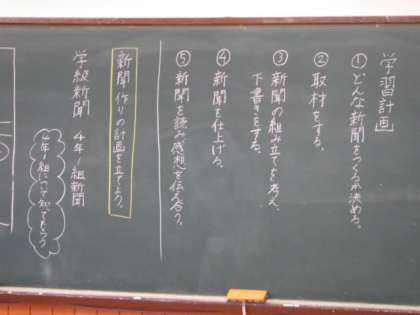 学習計画
①どんな新聞をつくるか決める。
②取材をする。
③新聞の組み立てを考え、
下書きをする。
④新聞を仕上げる。
⑤新聞を読み感想を伝え合う。
新聞作りの計画を立てよう。
学級新聞 4年1組新聞
4年1組について知ってもらう